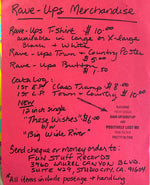 Rave-Ups Merchandise
Rave-Ups T-Shirt $10.00
available in Large or X-Large
Black & White
Rave-Ups Town & Country Poster
$5.00
Rave-Ups Button
$1.50
Catalog:
1st EP Class Tramp $8.00
1st LP Town & Country $10.00
NEW
12 inch single
"These Wishes" $6.00
b/w
"Big Wide River"
POSITIVELY LOST ME
Send cheque or money order to:
FUN STUFF RECORDS
3960 LAUREL CANYON BLVD.
SUITE 429, STUDIO CITY, CA. 91604
*All items include postage & handling